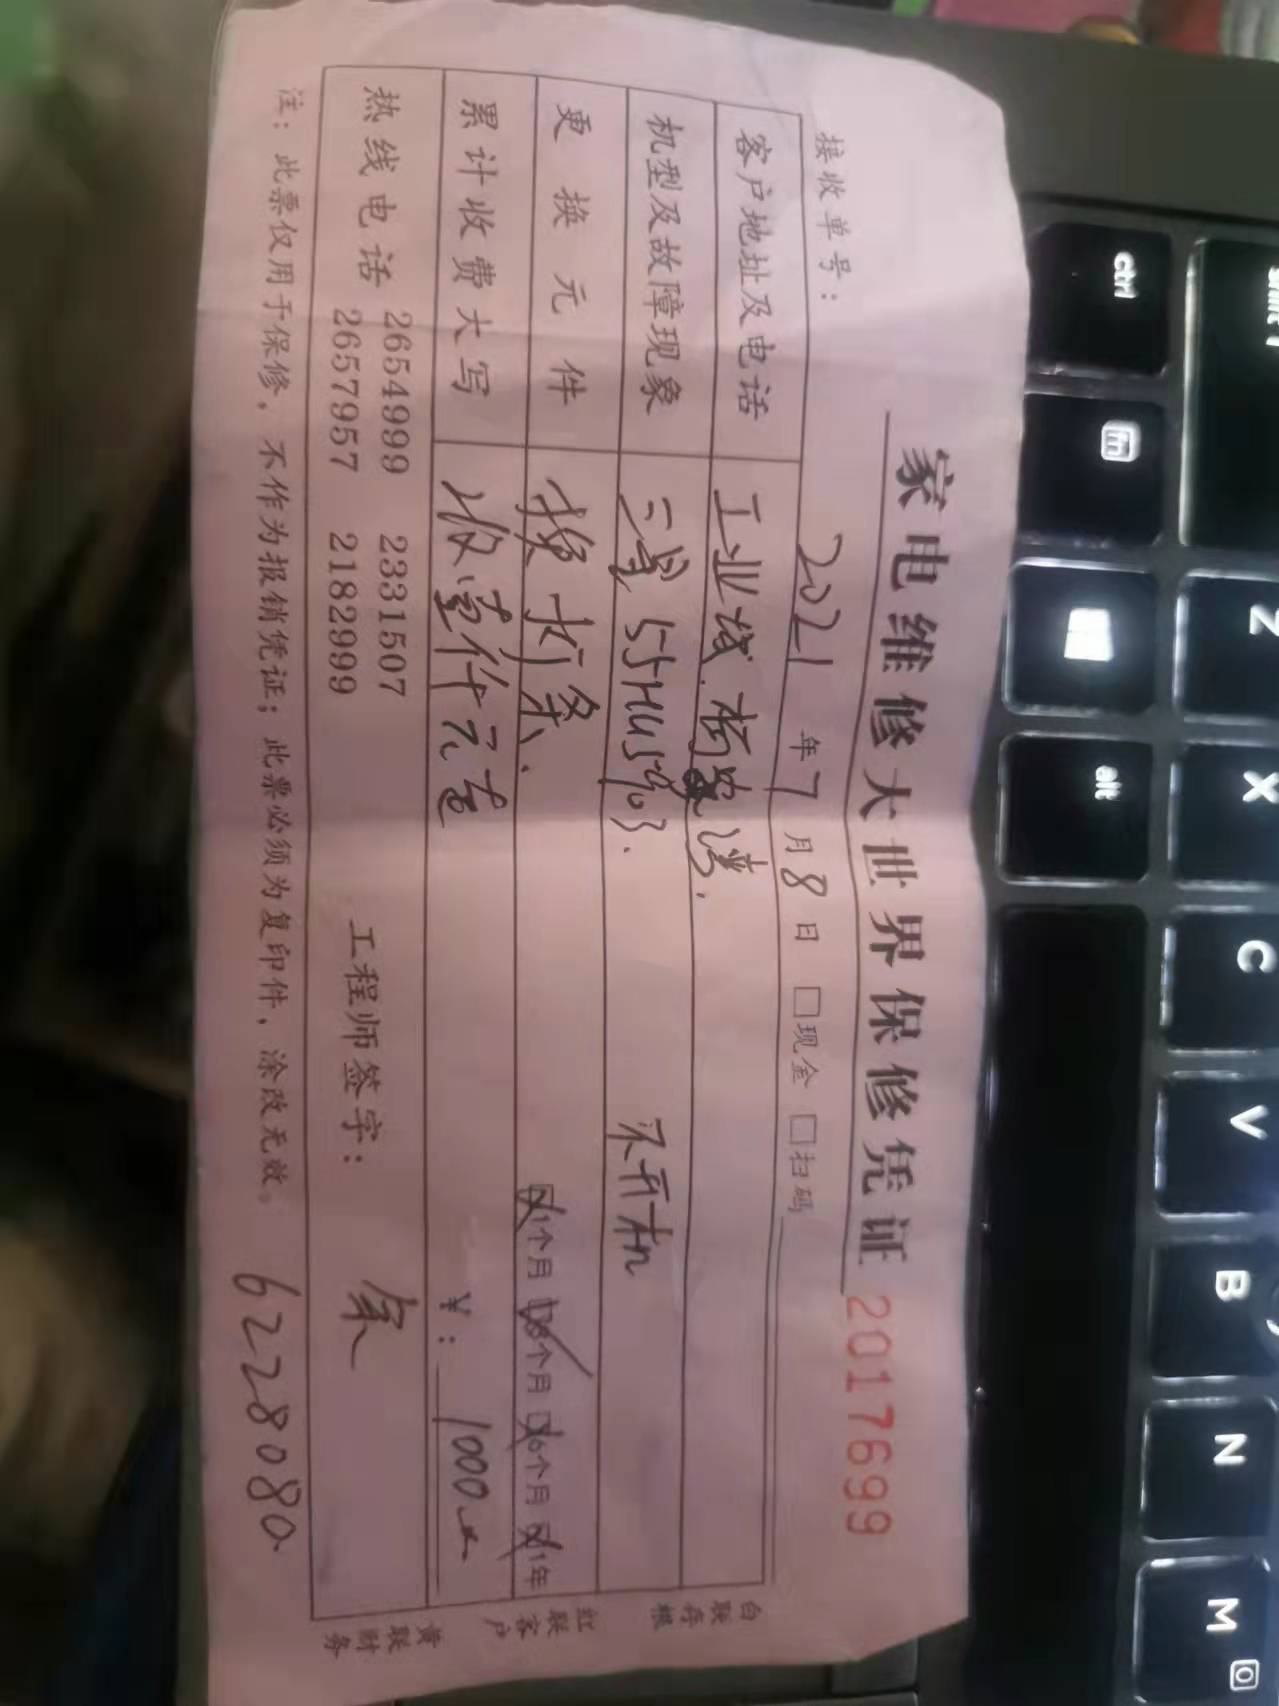 家电维修大世界保修凭证 2017699
接收单号： 2021 年 7 月 8 日 □现金 □扫码
客户地址及电话 工业城.杨家湾.
机型及故障现象 三星 55HU5903. 不开机
更换元件 换灯条. □1个月 □3个月 □6个月 □1年
累计收费大写 收壹仟元 ¥： 1000
热线电话 2654999 2331507 工程师签字： 余
2657957 2182999
注：此票仅用于保修，不作为报销凭证；此票必须为复印件，涂改无效。 6228080
白联存根
红联客户
黄联财务
ctrl
fn
alt
shift
Z
X
C
V
B
N
M